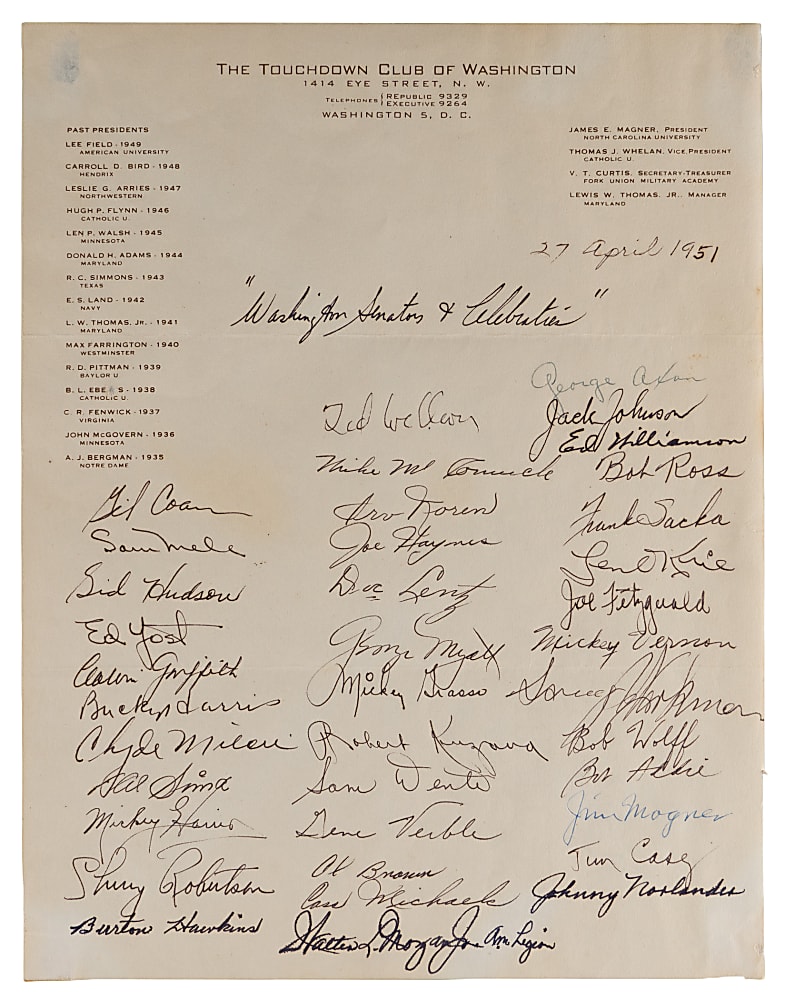 THE TOUCHDOWN CLUB OF WASHINGTON
1414 EYE STREET, N. W.
TELEPHONES { REPUBLIC 9329
EXECUTIVE 9264
WASHINGTON 5, D. C.
PAST PRESIDENTS
LEE FIELD - 1949
AMERICAN UNIVERSITY
CARROLL D. BIRD - 1948
HENDRIX
LESLIE G. ARRIES - 1947
NORTHWESTERN
HUGH P. FLYNN - 1946
CATHOLIC U.
LEN P. WALSH - 1945
MINNESOTA
DONALD H. ADAMS - 1944
MARYLAND
R. C. SIMMONS - 1943
TEXAS
E. S. LAND - 1942
NAVY
L. W. THOMAS, JR. - 1941
MARYLAND
MAX FARRINGTON - 1940
WESTMINSTER
R. D. PITTMAN - 1939
BAYLOR U
B. L. EBE S - 1938
CATHOLIC U.
C. R. FENWICK - 1937
VIRGINIA
JOHN McGOVERN - 1936
MINNESOTA
A. J. BERGMAN - 1935
NOTRE DAME
JAMES E. MAGNER, PRESIDENT
NORTH CAROLINA UNIVERSITY
THOMAS J. WHELAN, VICE PRESIDENT
CATHOLIC U.
V. T. CURTIS, SECRETARY-TREASURER
FORK UNION MILITARY ACADEMY
LEWIS W. THOMAS, JR., MANAGER
MARYLAND
27 April 1951
"Washington Senators & Celebraties"
Gil Coan
Sam Mele
Sid Hudson
Ed Yost
Calvin Griffith
Bucky Harris
Clyde Milan
Al Sima
Mickey Harris
Sherry Robertson
Burton Hawkins
Mike McCormick
Irv Noren
Joe Haynes
Doc Lentz
George Myatt
Mickey Grasso
Robert Kuzava
Sam Dente
Gene Verble
Al Brown
Cass Michaels
Walter L. Morgan Jr. Am. Legion
George
Jack Johnson
Ed Williamson
Bob Ross
Frank Sacka
Gene
Joe Fitzgerald
Mickey Vernon
Bob Wolff
Bob Addie
Jim Magner
Jim Casey
Johnny Norlander